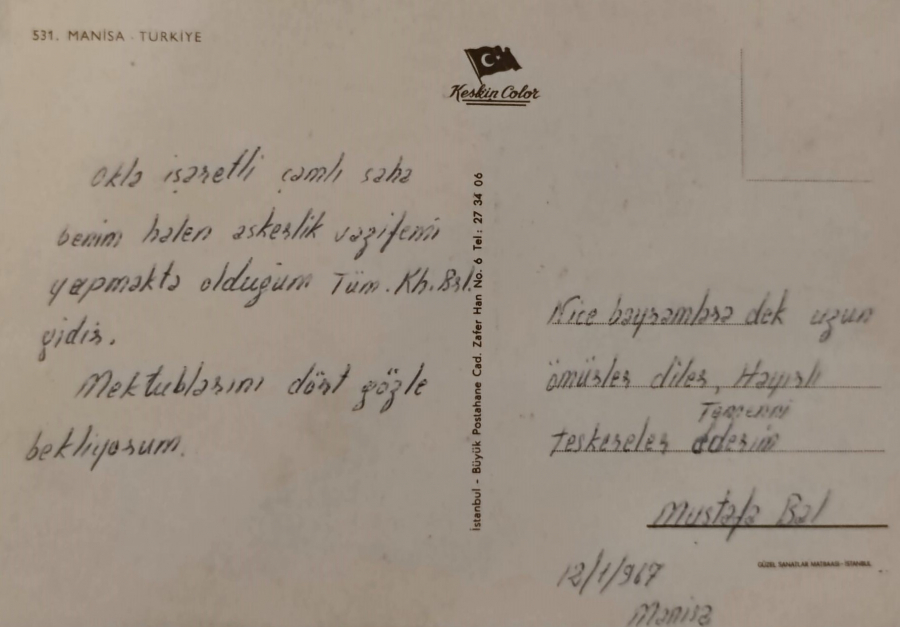 531. MANİSA - TÜRKİYE
Keskin Color
Okla işaretli çamlı saha
benim halen askerlik vazifemi
yapmakta olduğum Tüm. Kh. Brl.
yidir.
Mektublarını dört gözle
bekliyorum.
İstanbul - Büyük Postahane Cad. Zafer Han No. 6 Tel: 27 34 06
Nice bayramlara dek uzun
ömürler diler, Hayırlı
Temenni
teskereler ederim
Mustafa Bal
GÜZEL SANATLAR MATBAASI - İSTANBUL
12/1/967
Manisa